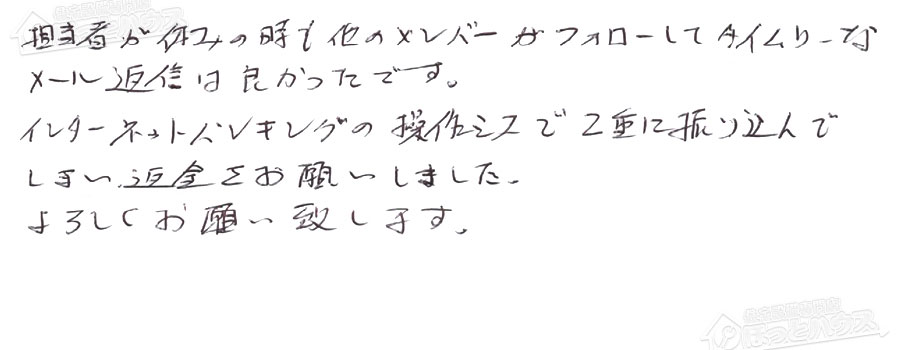 担当者が休みの時も他のメンバーがフォローしてタイムリーな
メール返信は良かったです。
インターネットバンキングの操作ミスで2重に振り込んで
しまい返金をお願いしました。
よろしくお願い致します。
ほっとハウス